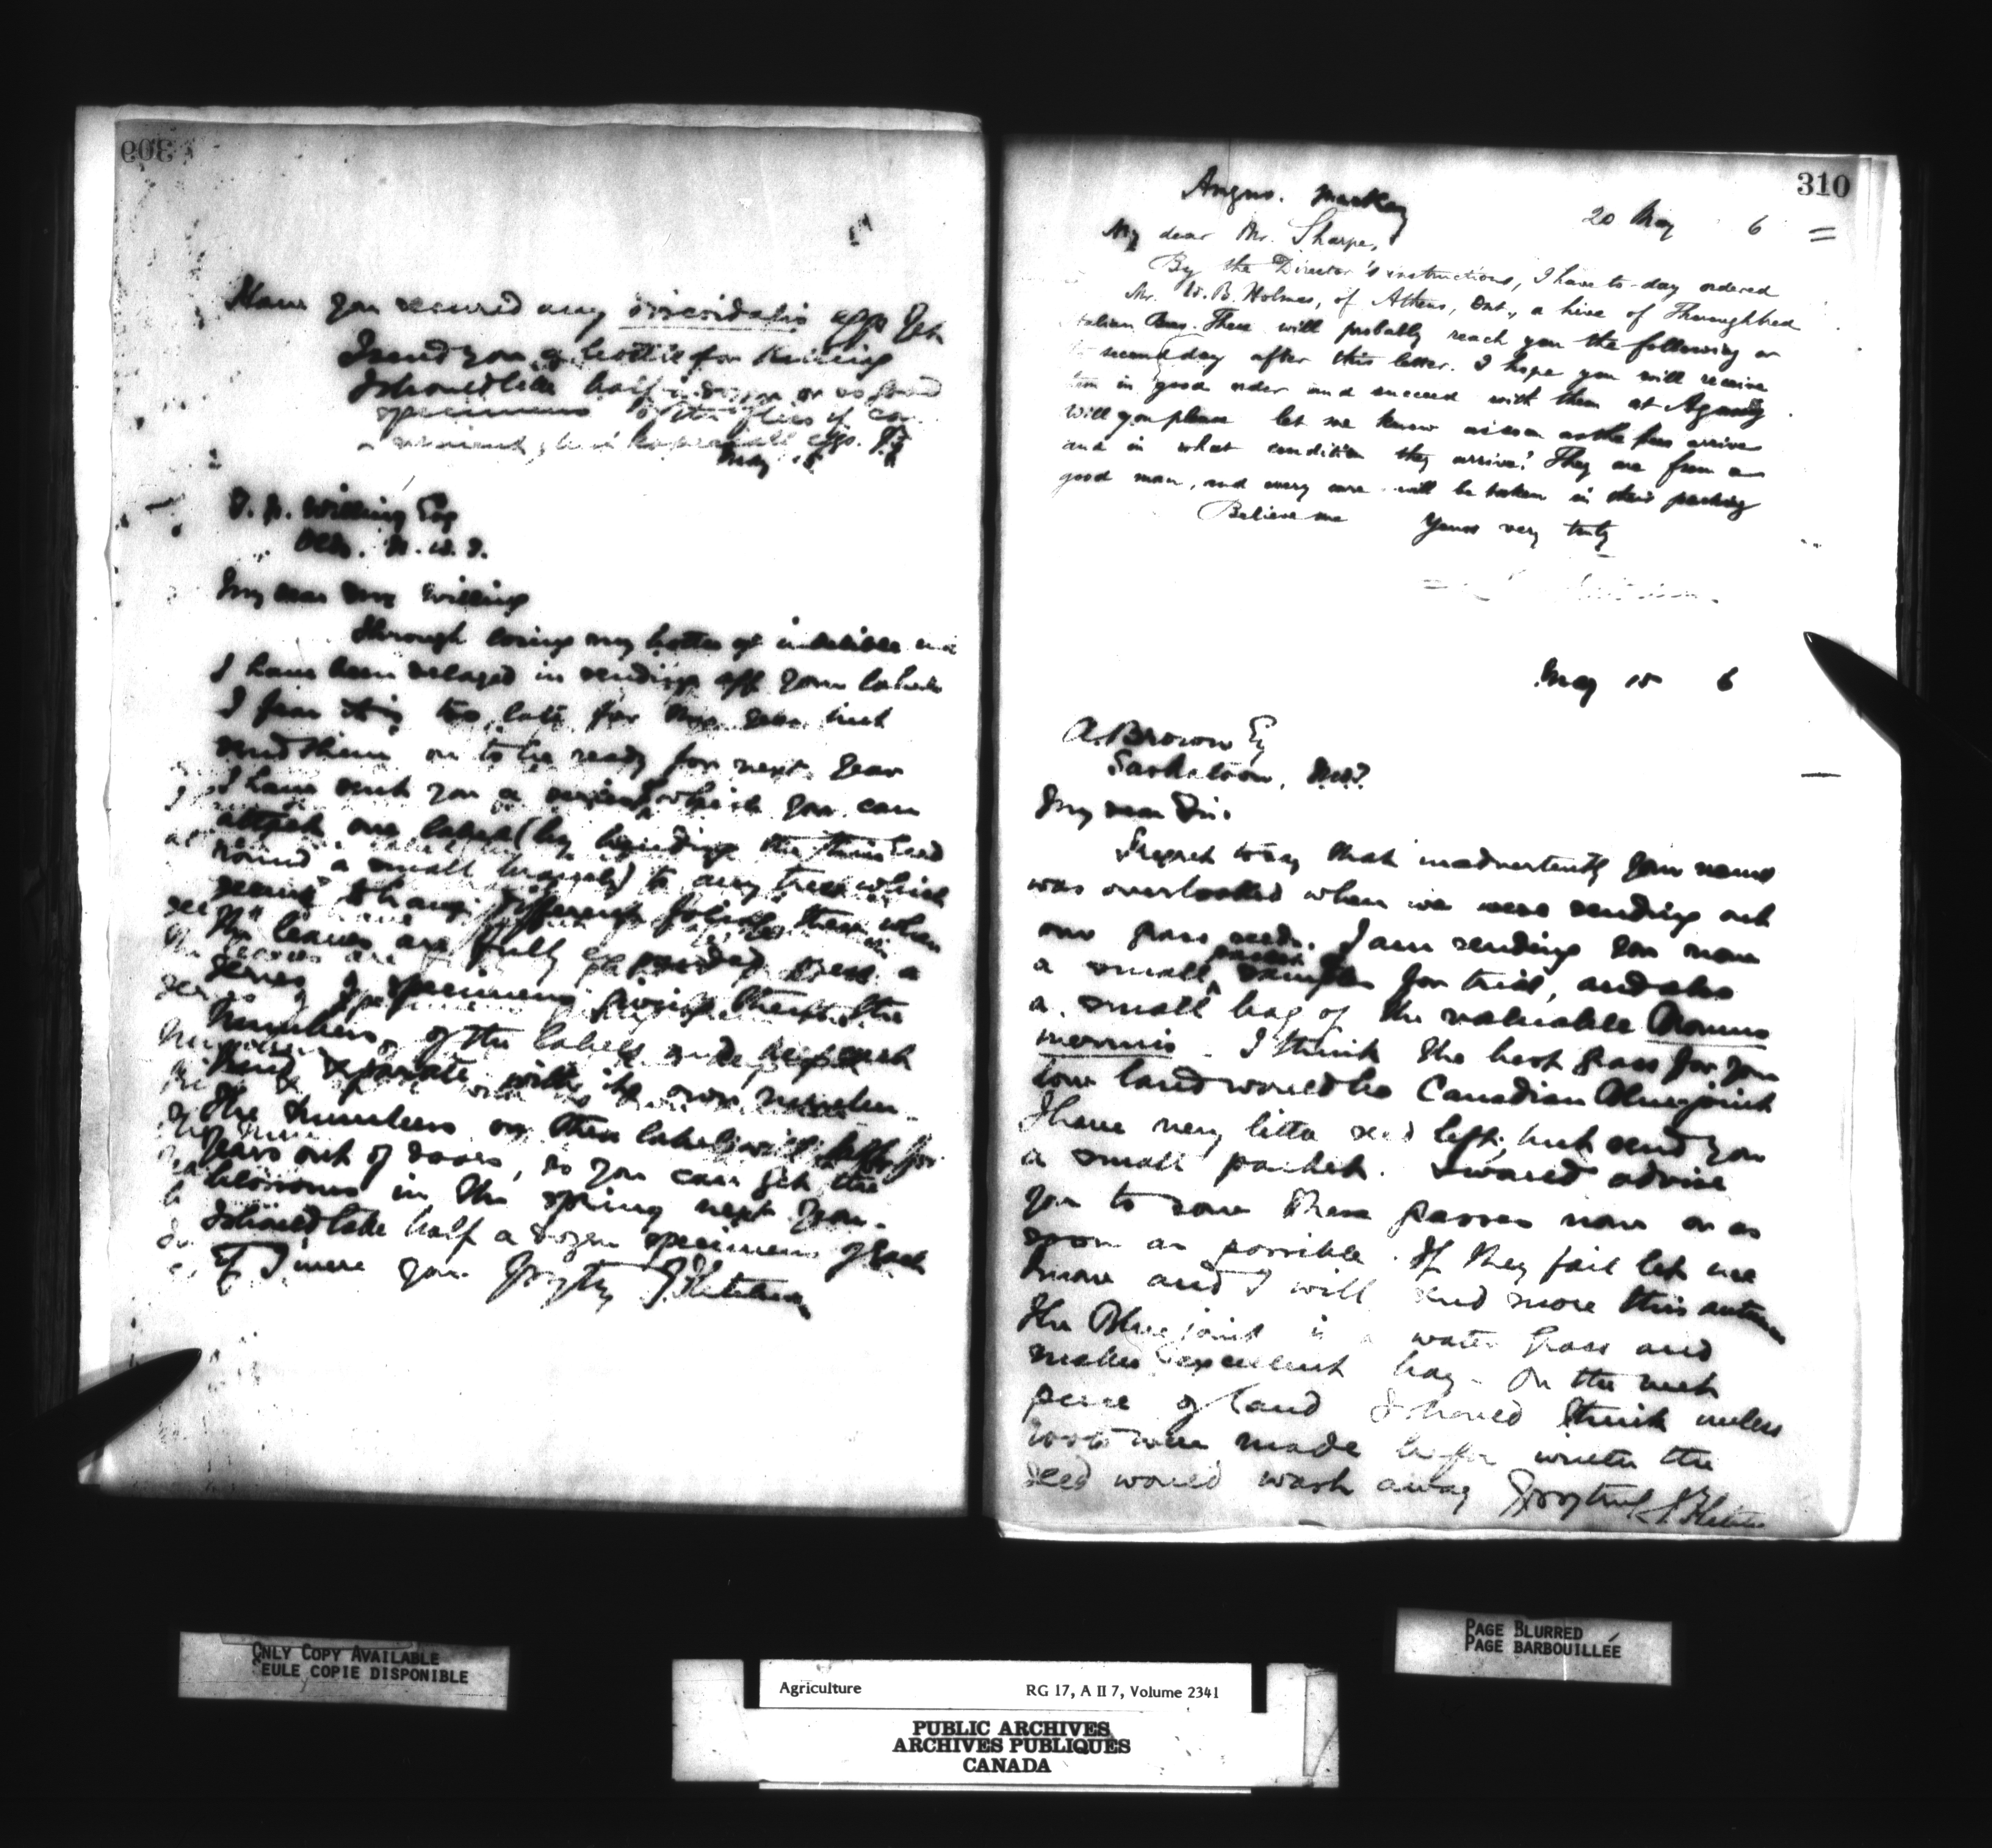 309
Have you secured any discoidalis eggs yet
I send you a bottle for killing
I should like half a dozen or so good
specimens of the flies if con
May 15
T. N. Willing Esq
Olds. N.W.T.
My dear Mr Willing
Through losing my bottle of indelible ink
I have been delayed in sending off your labels
I fear it is too late for this year but
send them on to be ready for next year
I have sent you a series which you can
attach one label (by bending the thin lead
round a small branch) to any tree which
seems to have different foliage then when
the leaves are fully expanded press a
series of specimens giving them the
numbers of the labels and keep each
kind separate with its own number.
The numbers on these labels will last for
years out of doors, so you can get the
blossoms in the spring next year.
I should like half a dozen specimens of each
if I were you. Yrs vy trly J. Fletcher
310
Angus. MacKay
20 May 6
My dear Mr. Sharpe,
By the Director's instructions, I have to-day ordered
Mr. W. B. Holmes, of Athens, Ont., a hive of Thoroughbred
Italian Bees. These will probably reach you the following or
second day after this letter. I hope you will receive
them in good order and succeed with them at Agassiz
Will you please let me know as soon as the bees arrive
and in what condition they arrive? They are from a
good man, and every care will be taken in their packing
Believe me Yours very truly
May 15 6
A. Brown Esq
Saskatoon, N.W.T.
My dear Sir.
I regret to say that inadvertently your name
was overlooked when we were sending out
our grass seeds. I am sending you now
a small packet of samples for trial, and also
a small bag of the valuable Bromus
inermis. I think the best grass for your
low land would be Canadian Blue joint
I have very little seed left; but send you
a small packet. I would advise
you to sow these grasses now or as
soon as possible. If they fail let me
know and I will send more this autumn
The Blue joint is a water grass and
makes excellent hay. On the wet
piece of land I should think unless
roots were made before winter the
seed would wash away Yrs vy truly J. Fletcher
ONLY COPY AVAILABLE
SEULE COPIE DISPONIBLE
PAGE BLURRED
PAGE BARBOUILLÉE
Agriculture RG 17, A II 7, Volume 2341
PUBLIC ARCHIVES
ARCHIVES PUBLIQUES
CANADA